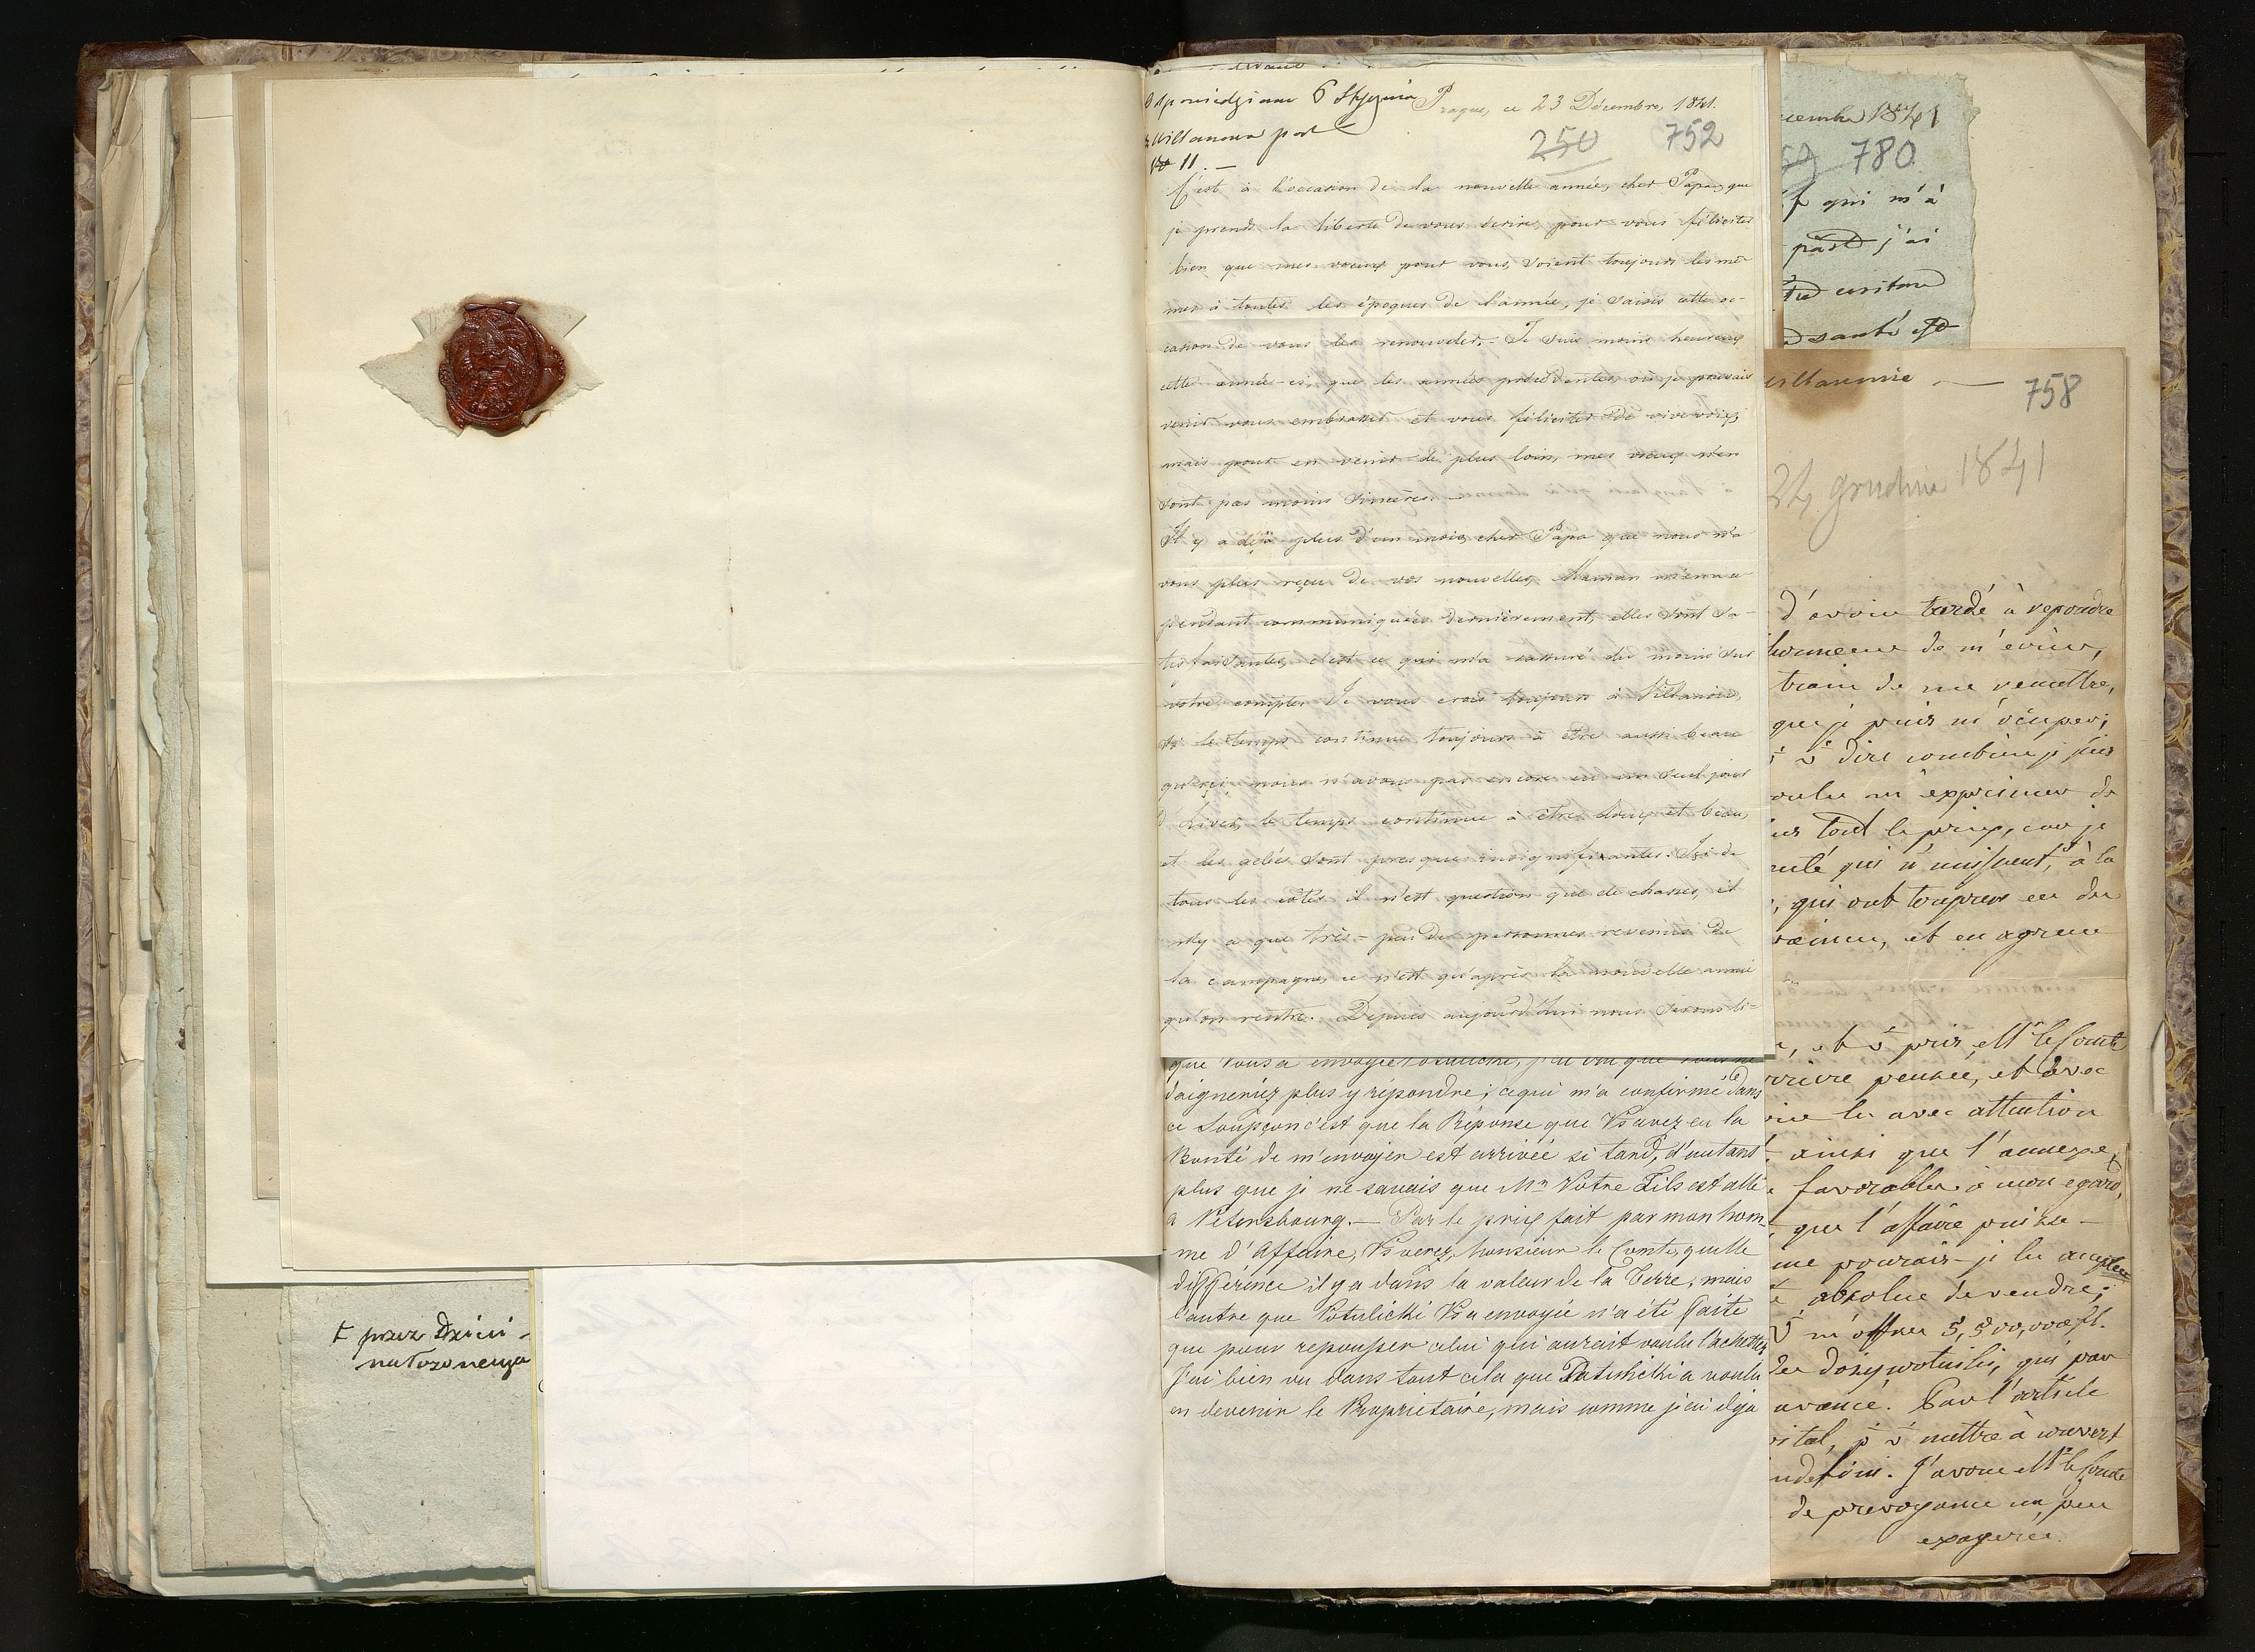 Odpowiedziano 6 Stycznia
z Willanowa pod
No 11. —
Prague, ce 23 Décembre, 1841.
250 752
C'est à l'occasion de la nouvelle année, cher Papa, que
je prends la liberté de vous écrire, pour vous féliciter
bien que mes voeux pour vous, soient toujours les mê-
mes à toutes les époques de l'année, je saisis cette oc-
casion de vous les renouveler. - Je suis moins heureux
cette année-ci, que les années précédentes, où je pouvais
venir vous embrasser et vous féliciter de vive voix,
mais pour en venir de plus loin, mes voeux n'en
sont pas moins sincères. —
Il y a déjà plus d'un mois, cher Papa que nous n'a
vons plus reçu de vos nouvelles, Maman m'en a ce
pendant communiquées dernièrement, elles sont sa-
tisfaisantes, c'est ce qui m'a rassuré du moins sur
votre compte. Je vous crois toujours à Villanow,
si le temps continue toujours à être aussi beau
qu'ici, nous n'avons pas encore eu un seul jour
d'hiver, le temps continue à être doux et beau,
et les gelées sont presque insignifiantes. Ici de
tous les côtés il n'est question que de chasses, il
n'y a que très-peu de personnes revenues de
la campagne, ce n'est qu'après la nouvelle année
qu'on rentre. Depuis aujourd'hui nous serons li-
que Vous a envoyée Potulicki, j'ai cru que vous ne
daigneriez plus y répondre; ce qui m'a confirmé dans
ce Soupçon c'est que la Réponse que Vs avez eu la
Bonté de m'envoyer est arrivée si tard, d'autant
plus que je ne savais que Mr Votre Fils est allé
à Petersbourg. — Par le prix fait par mon hom-
me d'Affaire, Vs verez, Monsieur le Comte, quelle
différence il y a dans la valeur de la Terre, mais
l'autre que Potulicki Vs a envoyée n'a été faite
que pour repousser celui qui aurait voulu l'acheter
J'ai bien vu dans tout cela que Potulicki a voulu
en devenir le Propriétaire, mais comme j'ai déja
przez Dzieci -
cembre 1841
780
f qui m'a
part j'ai
santé et
758
24 grudnia 1841
d'avoir tardé à repondre
honneur de m'écrire,
train de me remettre,
que je puis m'ocuper;
dire combien je suis
voulu m'exprimer de
tout le prix, car je
qui n'uissent, à la
, qui ont toujours eu du
et en agréer
pris, Mr le Comte
arrière pensée, et avec
lu avec attention
ainsi que l'annexe,
favorables à mon egard,
que l'affaire puisse —
me pourais-je lu accepter
absolue de vendre;
m'offrez 5,500,000 fl.
qui par
avance. Par l'article
mettre à couvert
J'avoue Mr le Comte
de prevoyance un peu
exagerée.